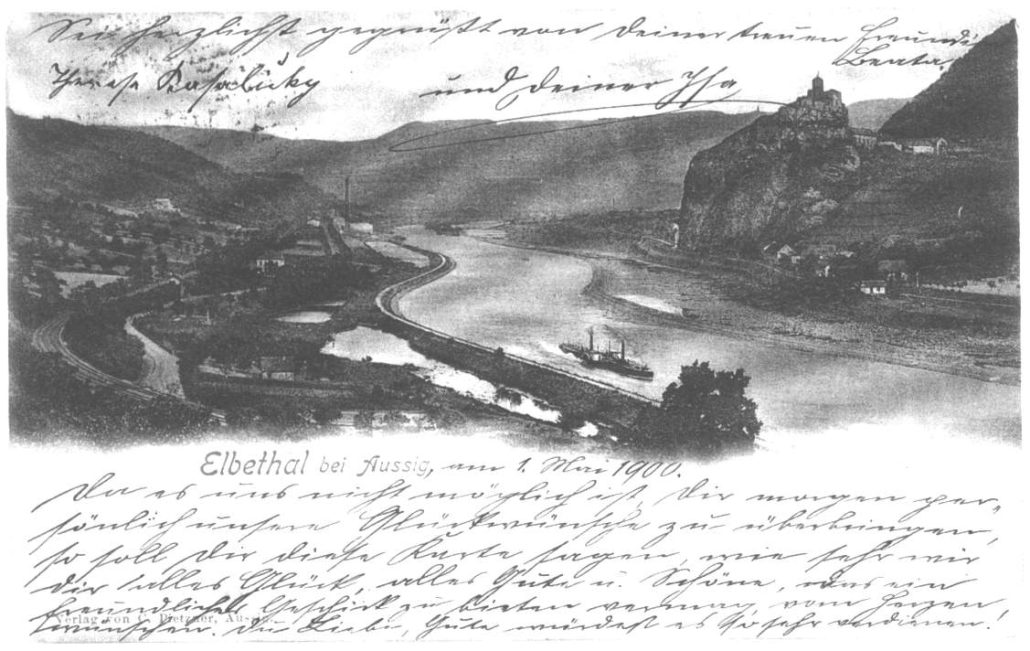 Sei herzlichst gegrüßt von Deiner treuen Freundin
Beata
Therese
und Deiner Isa
Elbethal bei Aussig, am 1. Mai 1900.
Da es uns nicht möglich ist, Dir morgen per-
sönlich unsere Glückwünsche zu überbringen,
so soll Dir diese Karte sagen, wie sehr wir
Dir alles Glück, alles Gute u. Schöne, was ein
freundliches Geschick zu bieten vermag, vom Herzen
wünschen. Du Liebe, Gute würdest es so sehr verdienen!
Verlag von C. Dietzner, Aussig.